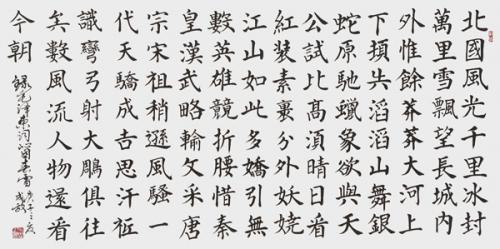 北國風光千里冰封
萬里雪飄望長城內
外惟餘莽莽大河上
下頓失滔滔山舞銀
蛇原馳蠟象欲與天
公試比高須晴日看
紅裝素裹分外妖嬈
江山如此多嬌引無
數英雄競折腰惜秦
皇漢武略輸文采唐
宗宋祖稍遜風騷一
代天驕成吉思汗祗
識彎弓射大雕俱往
矣數風流人物還看
今朝
錄毛澤東詞沁園春雪